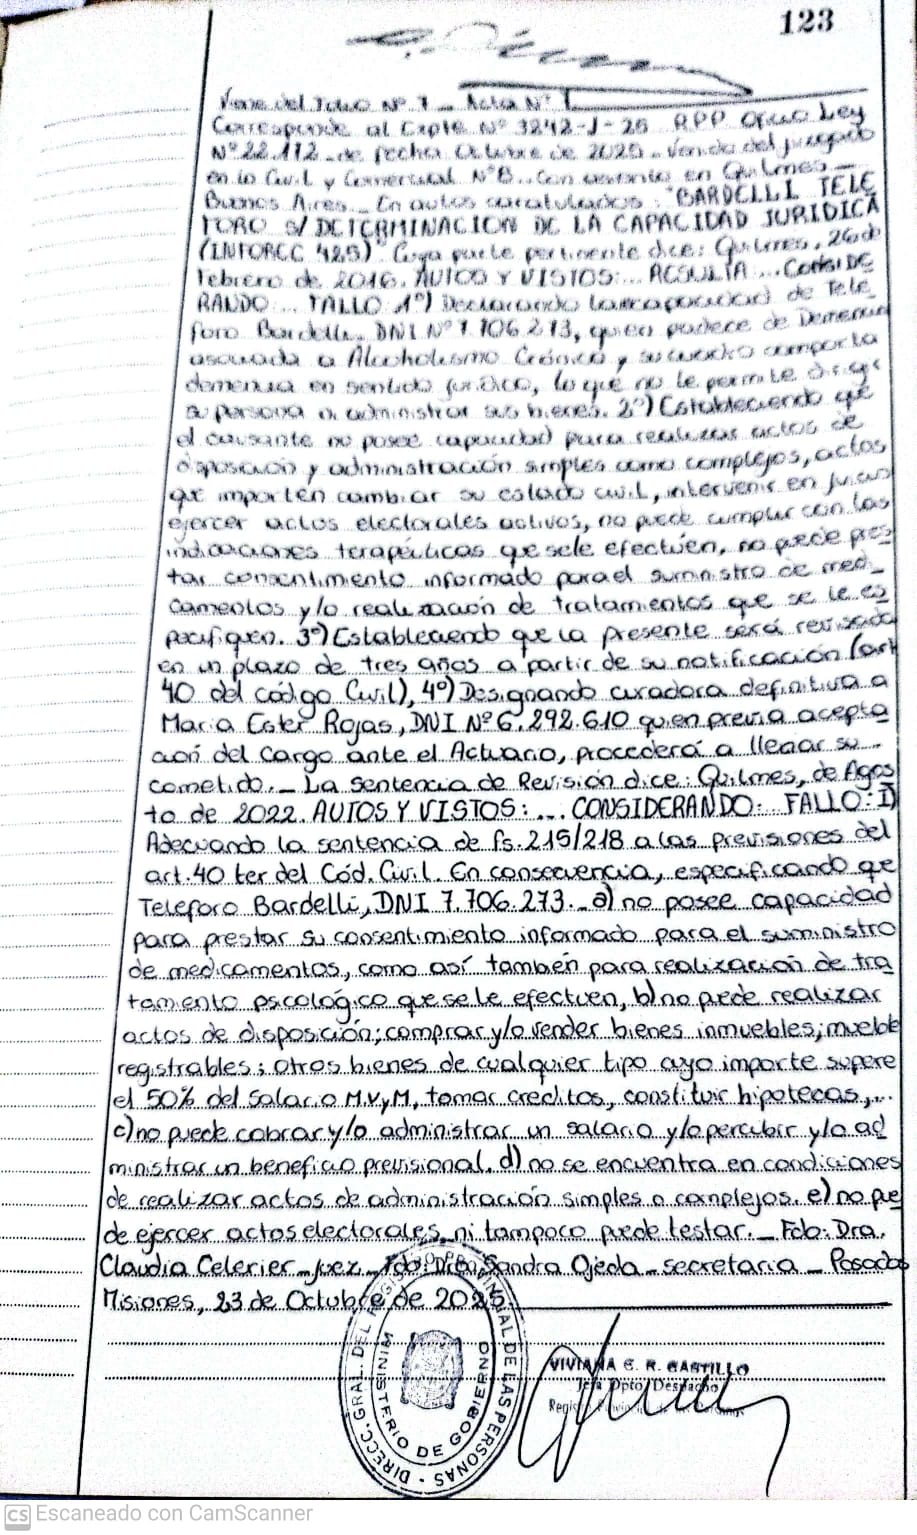 123
Viene del Folio Nº 7 - Acta Nº 1
Corresponde al Expte Nº 3242-J-25 RPP Oficio Ley
Nº 22.172 - de fecha Octubre de 2025 - Venido del juzgado
en lo Civil y Comercial Nº 8 - Con asiento en Quilmes -
Buenos Aires - En autos caratulados: "BARDELLI TELE
FORO s/ DETERMINACION DE LA CAPACIDAD JURIDICA
(INFOREC 925)" Cuya parte pertinente dice: Quilmes, 26 de
Febrero de 2016. AUTOS Y VISTOS:... RESULTA... CONSIDE
RANDO... FALLO: 1º) Declarando la incapacidad de Tele
foro Bardelli - DNI Nº 7.706.273, quien padece de Demencia
asociada a Alcoholismo Crónico y su cuadro comporta
demencia en sentido jurídico, lo que no le permite dirigir
su persona ni administrar sus bienes. 2º) Estableciendo que
el causante no posee capacidad para realizar actos de
disposición y administración simples como complejos, actos
que importen cambiar su estado civil, intervenir en juicio
ejercer actos electorales activos, no puede cumplir con las
indicaciones terapéuticas que se le efectúen, no puede pres
tar consentimiento informado para el suministro de medi_
camentos y/o realización de tratamientos que se le es
pecifiquen. 3º) Estableciendo que la presente será revisada
en un plazo de tres años a partir de su notificación (art
40 del código Civil), 4º) Designando curadora definitiva a
Maria Ester Rojas, DNI Nº 6.292.610 quien previa acepta
ción del Cargo ante el Actuario, procederá a llenar su
cometido. - La sentencia de Revisión dice: Quilmes, de Agos
to de 2022. AUTOS Y VISTOS:... CONSIDERANDO: FALLO: I)
Adecuando la sentencia de fs. 215/218 a las previsiones del
art. 40 ter del Cód. Civil. En consecuencia, especificando que
Teleforo Bardelli, DNI 7.706.273. - a) no posee capacidad
para prestar su consentimiento informado para el suministro
de medicamentos, como así también para realización de tra
tamiento psicológico que se le efectuen, b) no puede realizar
actos de disposición; comprar y/o vender bienes inmuebles; mueble
registrables; otros bienes de cualquier tipo cuyo importe supere
el 50% del Salario M.V.y M, tomar creditos, constituir hipotecas,...
c) no puede cobrar y/o administrar un salario y/o percibir y/o ad
ministrar un beneficio previsional. d) no se encuentra en condiciones
de realizar actos de administración simples o complejos. e) no pue
de ejercer actos electorales, ni tampoco puede testar. - Fdo: Dra.
Claudia Celerier - Juez - Fdo: Dra. Sandra Ojeda - secretaria - Posadas
Misiones, 23 de Octubre de 2025
DIRECC. GRAL. DEL REGISTRO PROVINCIAL DE LAS PERSONAS
MINISTERIO DE GOBIERNO
VIVIANA E. R. CASTILLO
Jefa Dpto. Despacho
CS Escaneado con CamScanner